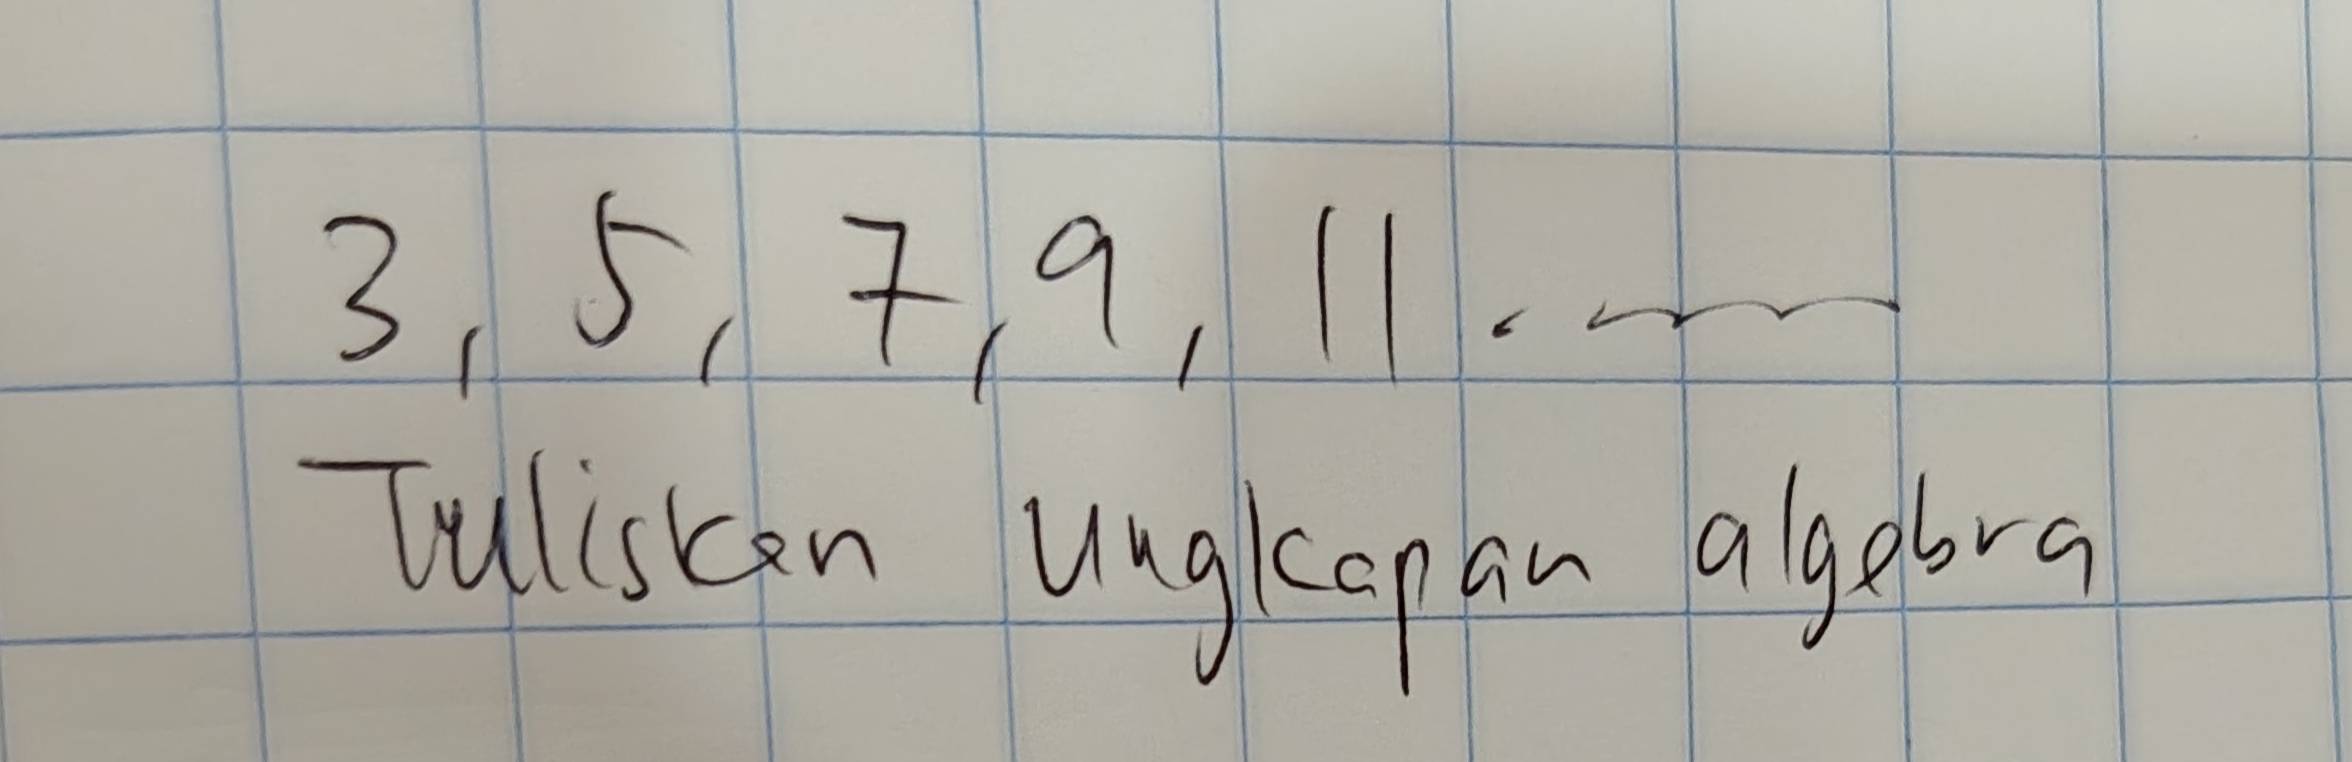 3, 5, 7, 9, 11 . ....
Tuliskan Ungkapan algebra